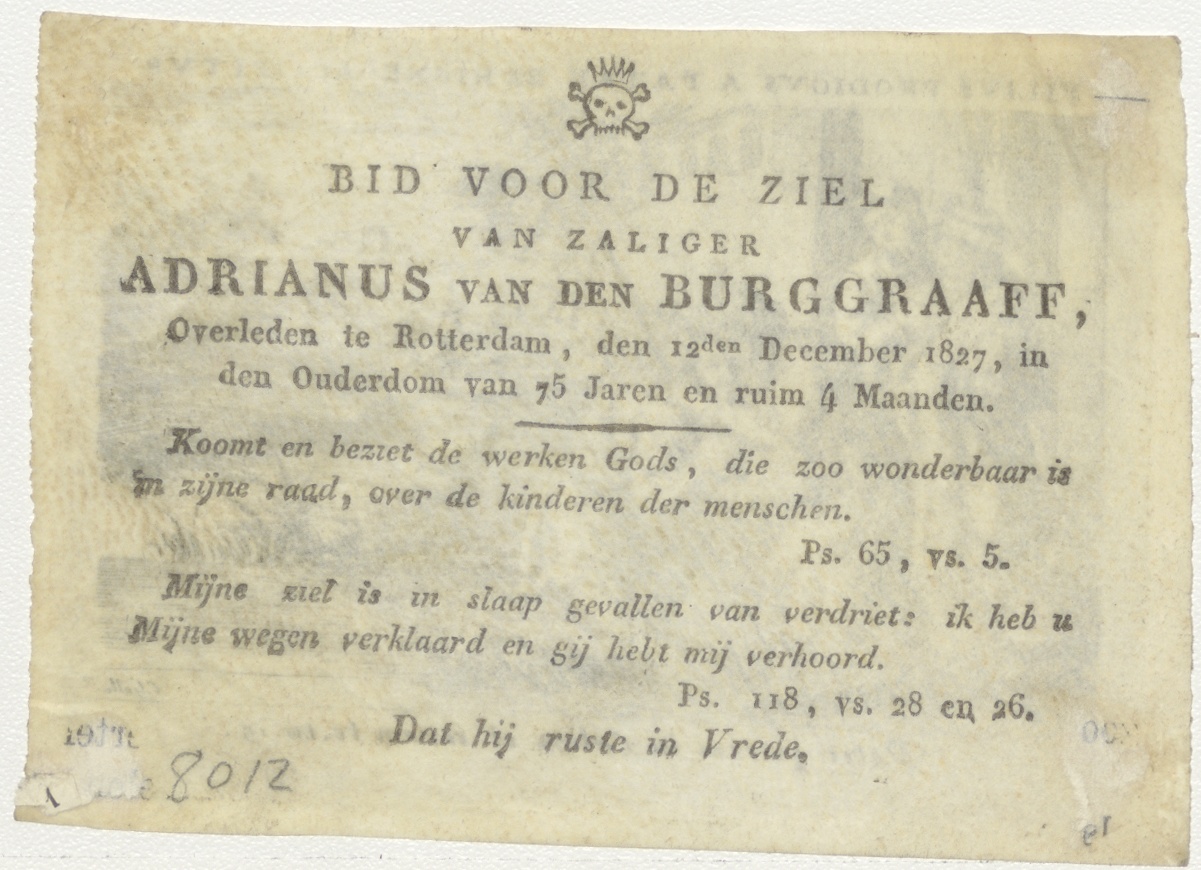 BID VOOR DE ZIEL
VAN ZALIGER
ADRIANUS VAN DEN BURGGRAAFF,
Overleden te Rotterdam, den 12den December 1827, in
den Ouderdom van 75 Jaren en ruim 4 Maanden.
Koomt en beziet de werken Gods, die zoo wonderbaar is
in zijne raad, over de kinderen der menschen.
Ps. 65, vs. 5.
Mijne ziel is in slaap gevallen van verdriet: ik heb u
Mijne wegen verklaard en gij hebt mij verhoord.
Ps. 118, vs. 28 en 26.
Dat hij ruste in Vrede.
8012